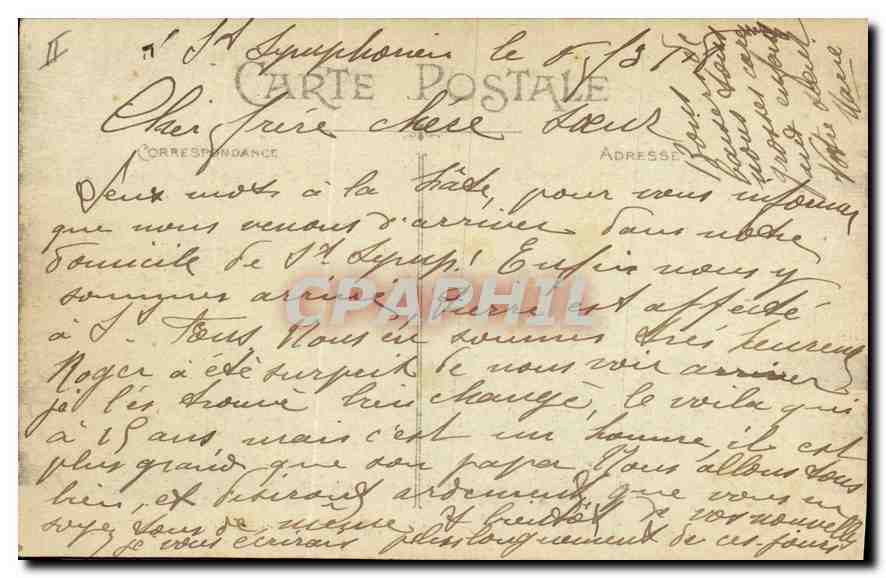 II
St Symphorien le
CARTE POSTALE
Cher frère chère Sœur
CORRESPONDANCE
ADRESSE
Deux mots à la hâte, pour vous informer
que nous venons d'arriver dans notre
domicile de St Symp! Enfin nous y
sommes arrivés, Pierre est affecté
à Tous Nous en sommes très heureux
Roger à été surpris de nous voir arriver
je l'és trouvé bien changé, le voila qui
à 15 ans, mais c'est un homme il est
plus grand que son papa Nous allons tous
bien, et désirons ardement que vous en
soyez tous de même A bientôt de vos nouvelles
je vous écrirais plus longuement de ces jours
Bons
baisers
de nous
gros
Votre
CPAPHIL